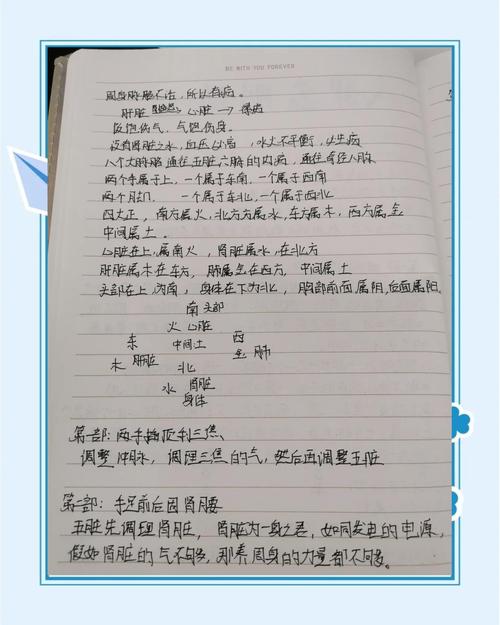 BE WITH YOU FOREVER
周身脉络不活，所以有病。
肝脏 心脏 → 躁病
饭饱伤气，气饱伤身。
没有肾脏之水，血压必高，水火不平衡，必生病
八个大脉络通往五脏六腑的内病，通往奇经八脉
两个手属于上，一个属于东南，一个属于西南
两个，一个属于东北，一个属于西北
四大正，南方属火，北方为属水，东方属木，西方属金
中间属土。
心脏在上，属南火，肾脏属水，在北方
肝脏属木在东方，肺属金在西方，中间属土
头部在上，为南，身体在下为北，胸部前面属阴，后面属阳。
南 头部
火 心脏
东 中间土 西
木 肝脏 金 肺
北
水 肾脏
身体
第一部：两手插顶利三焦、
调整冲脉，调理三焦的气，然后再调整五脏
第二部：手足前后固肾腰
五脏先调理肾脏，肾脏为一身之君，如同发电的电源，
假如肾脏的气不够，那养周身的力量都不够。